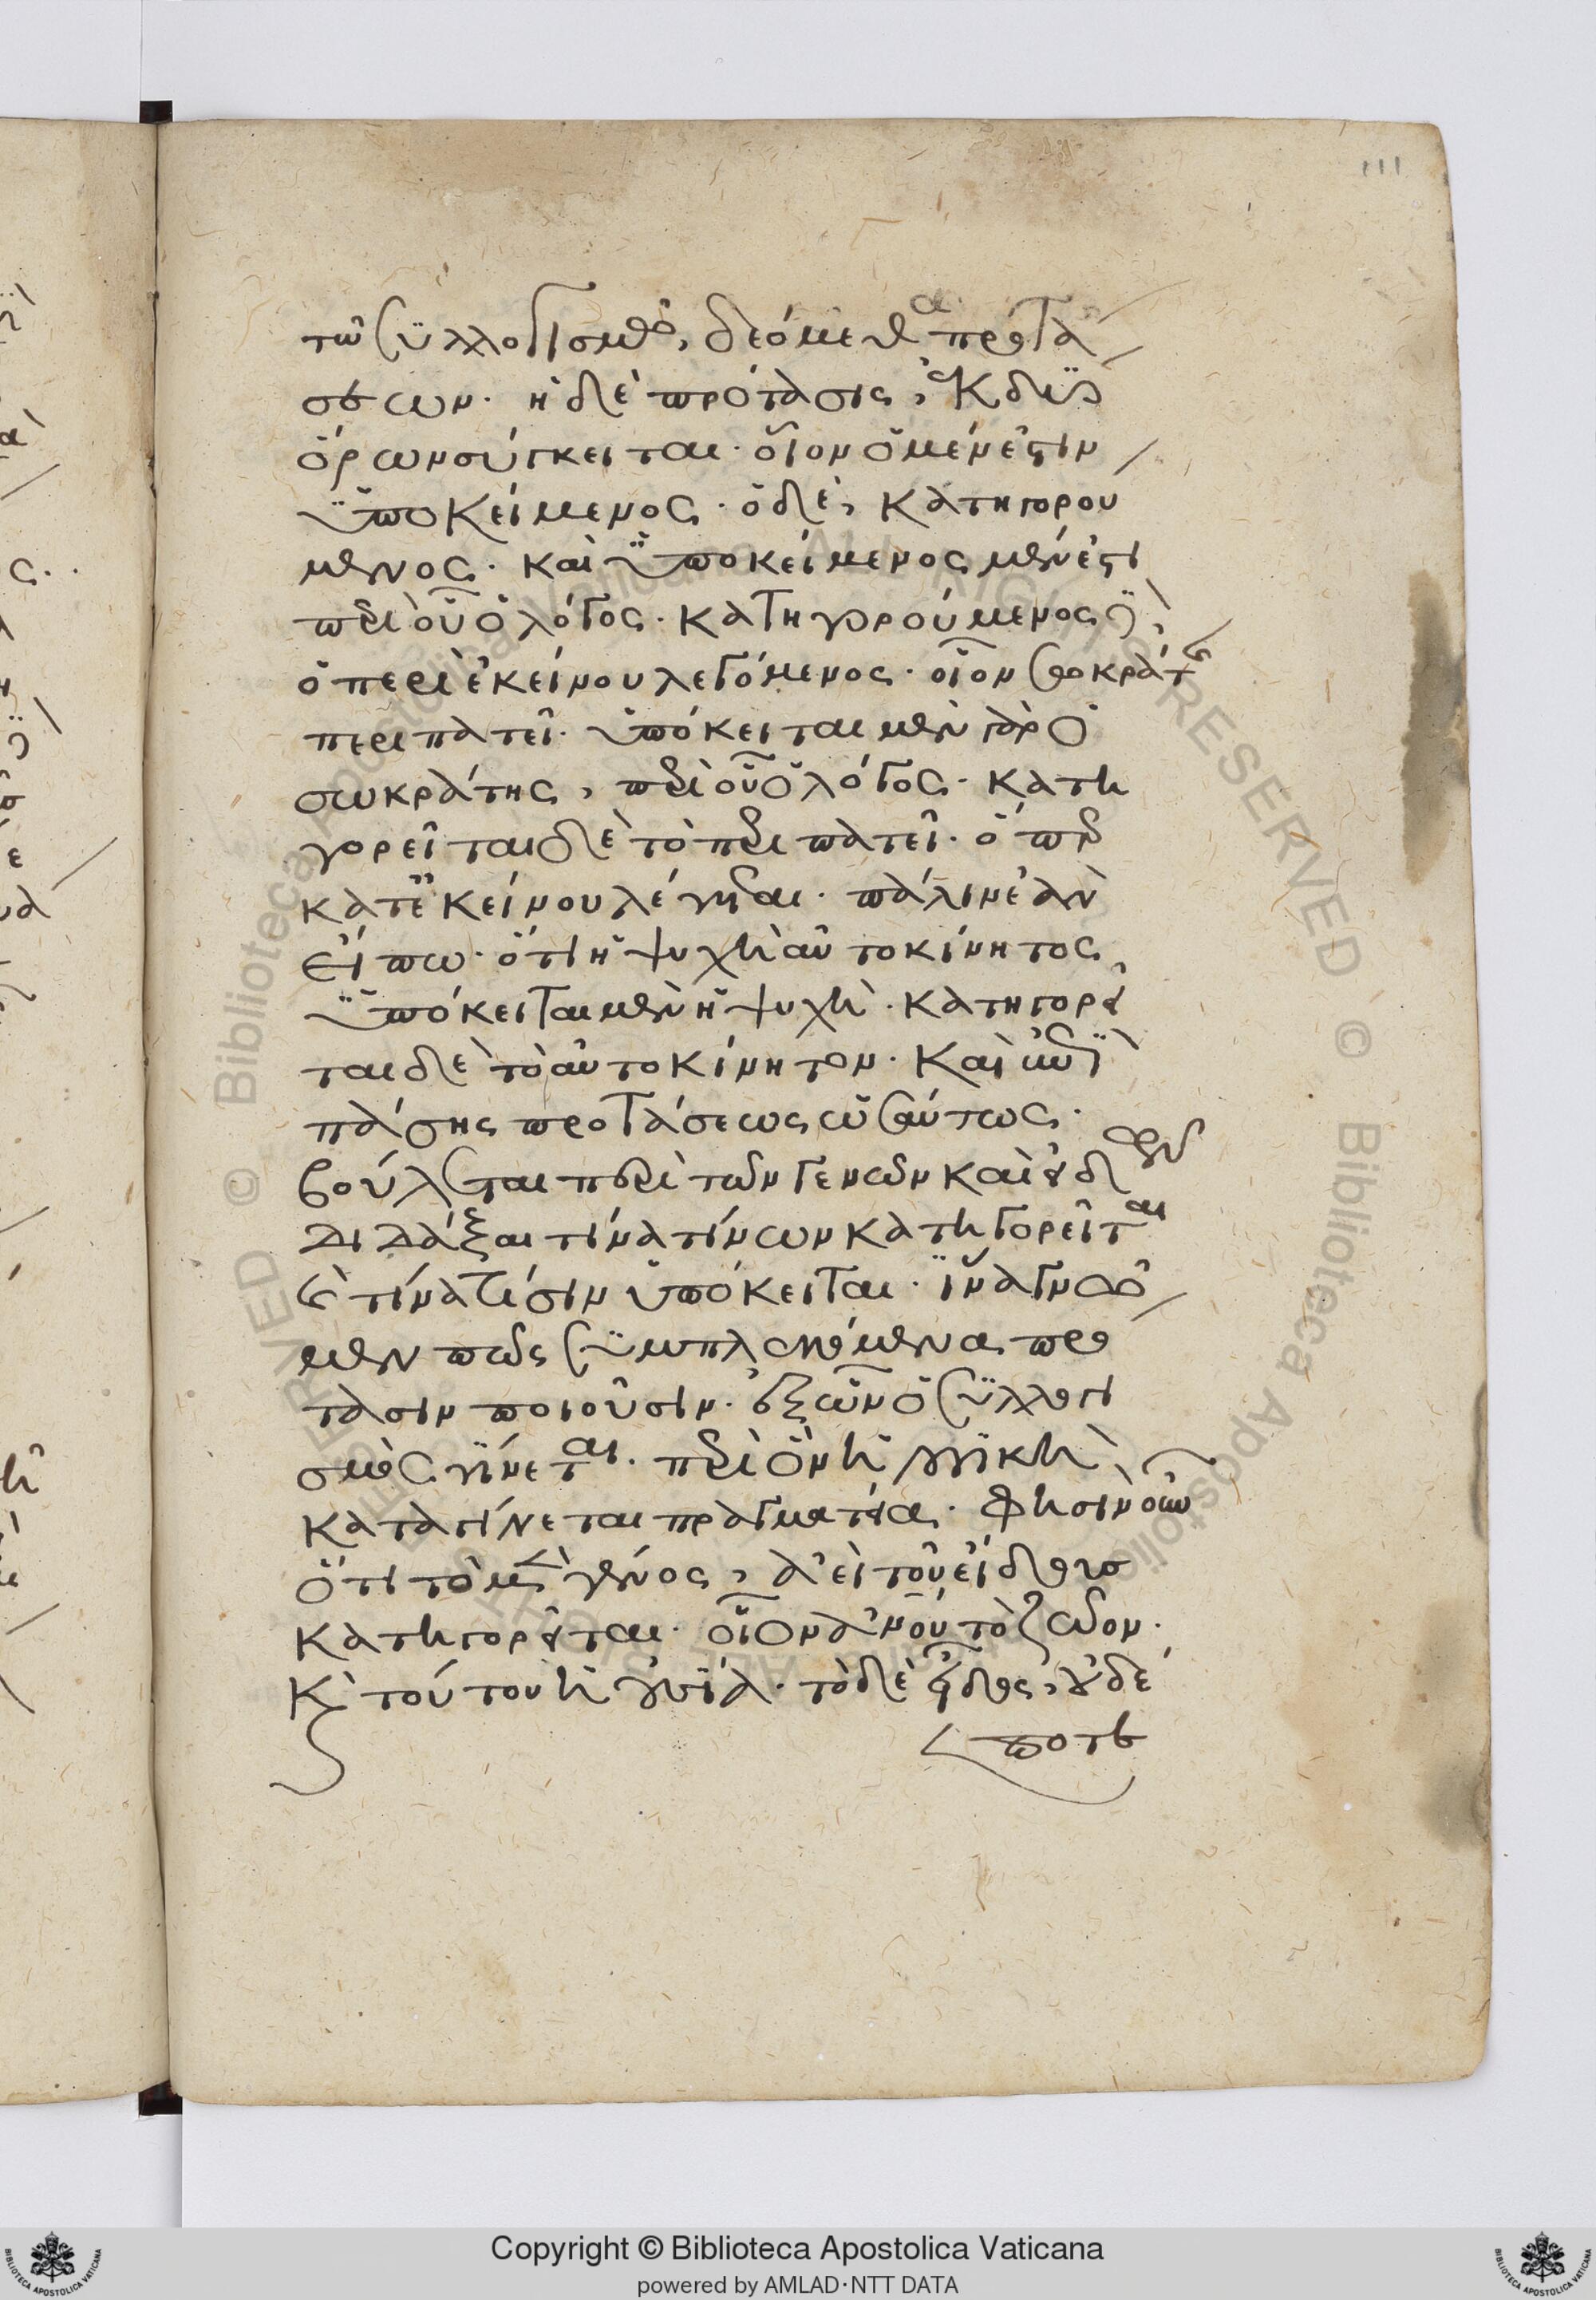 111
τῶ συλλογισμῶ, δεόμεθα προτά
σεων. ἡ δὲ πρότασις, ἐκ δύο
ὅρων σύγκειται. οἷον ὁ μέν ἐστιν
ὑποκείμενος. ὁ δὲ, κατηγορού
μενος. καὶ ὑποκείμενος μέν ἐστι
περὶ οὗ ὁ λόγος. κατηγορούμενος δὲ,
ὁ περὶ ἐκείνου λεγόμενος. οἷον σωκράτης
περιπατεῖ. ὑπόκειται μὲν γὰρ ὁ
σωκράτης, περὶ οὗ ὁ λόγος. κατη
γορεῖται δὲ τὸ περιπατεῖ. ὅπερ
κατ' ἐκείνου λέγεται. πάλιν ἐὰν
εἴπω. ὅτι ἡ ψυχὴ αὐτοκίνητος,
ὑπόκειται μὲν ἡ ψυχὴ. κατηγορεῖ
ται δὲ τὸ αὐτοκίνητον. καὶ ἐπὶ
πάσης προτάσεως ὡσαύτως.
βούλεται περὶ τῶν γενῶν καὶ εἰδῶν
διδάξαι τίνα τίνων κατηγορεῖται
καὶ τίνα τίσιν ὑπόκειται. ἵνα γνῶ
μεν πῶς συμπλεκόμενα πρό
τασιν ποιοῦσιν. ἐξ ὧν ὁ συλλογι
σμὸς γίνεται. περὶ ὃν ἡ λογικὴ
καταγίνεται πραγματεία. φησὶν οὖν
ὅτι τὸ μὲν γένος, ἀεὶ τοῦ εἴδους
κατηγορεῖται. οἷον ἀνοῦ τὸ ζῶον.
καὶ τούτου ἡ οὐσία. τὸ δὲ εἶδος, οὐδέ
ποτε
Copyright © Biblioteca Apostolica Vaticana
powered by AMLAD·NTT DATA